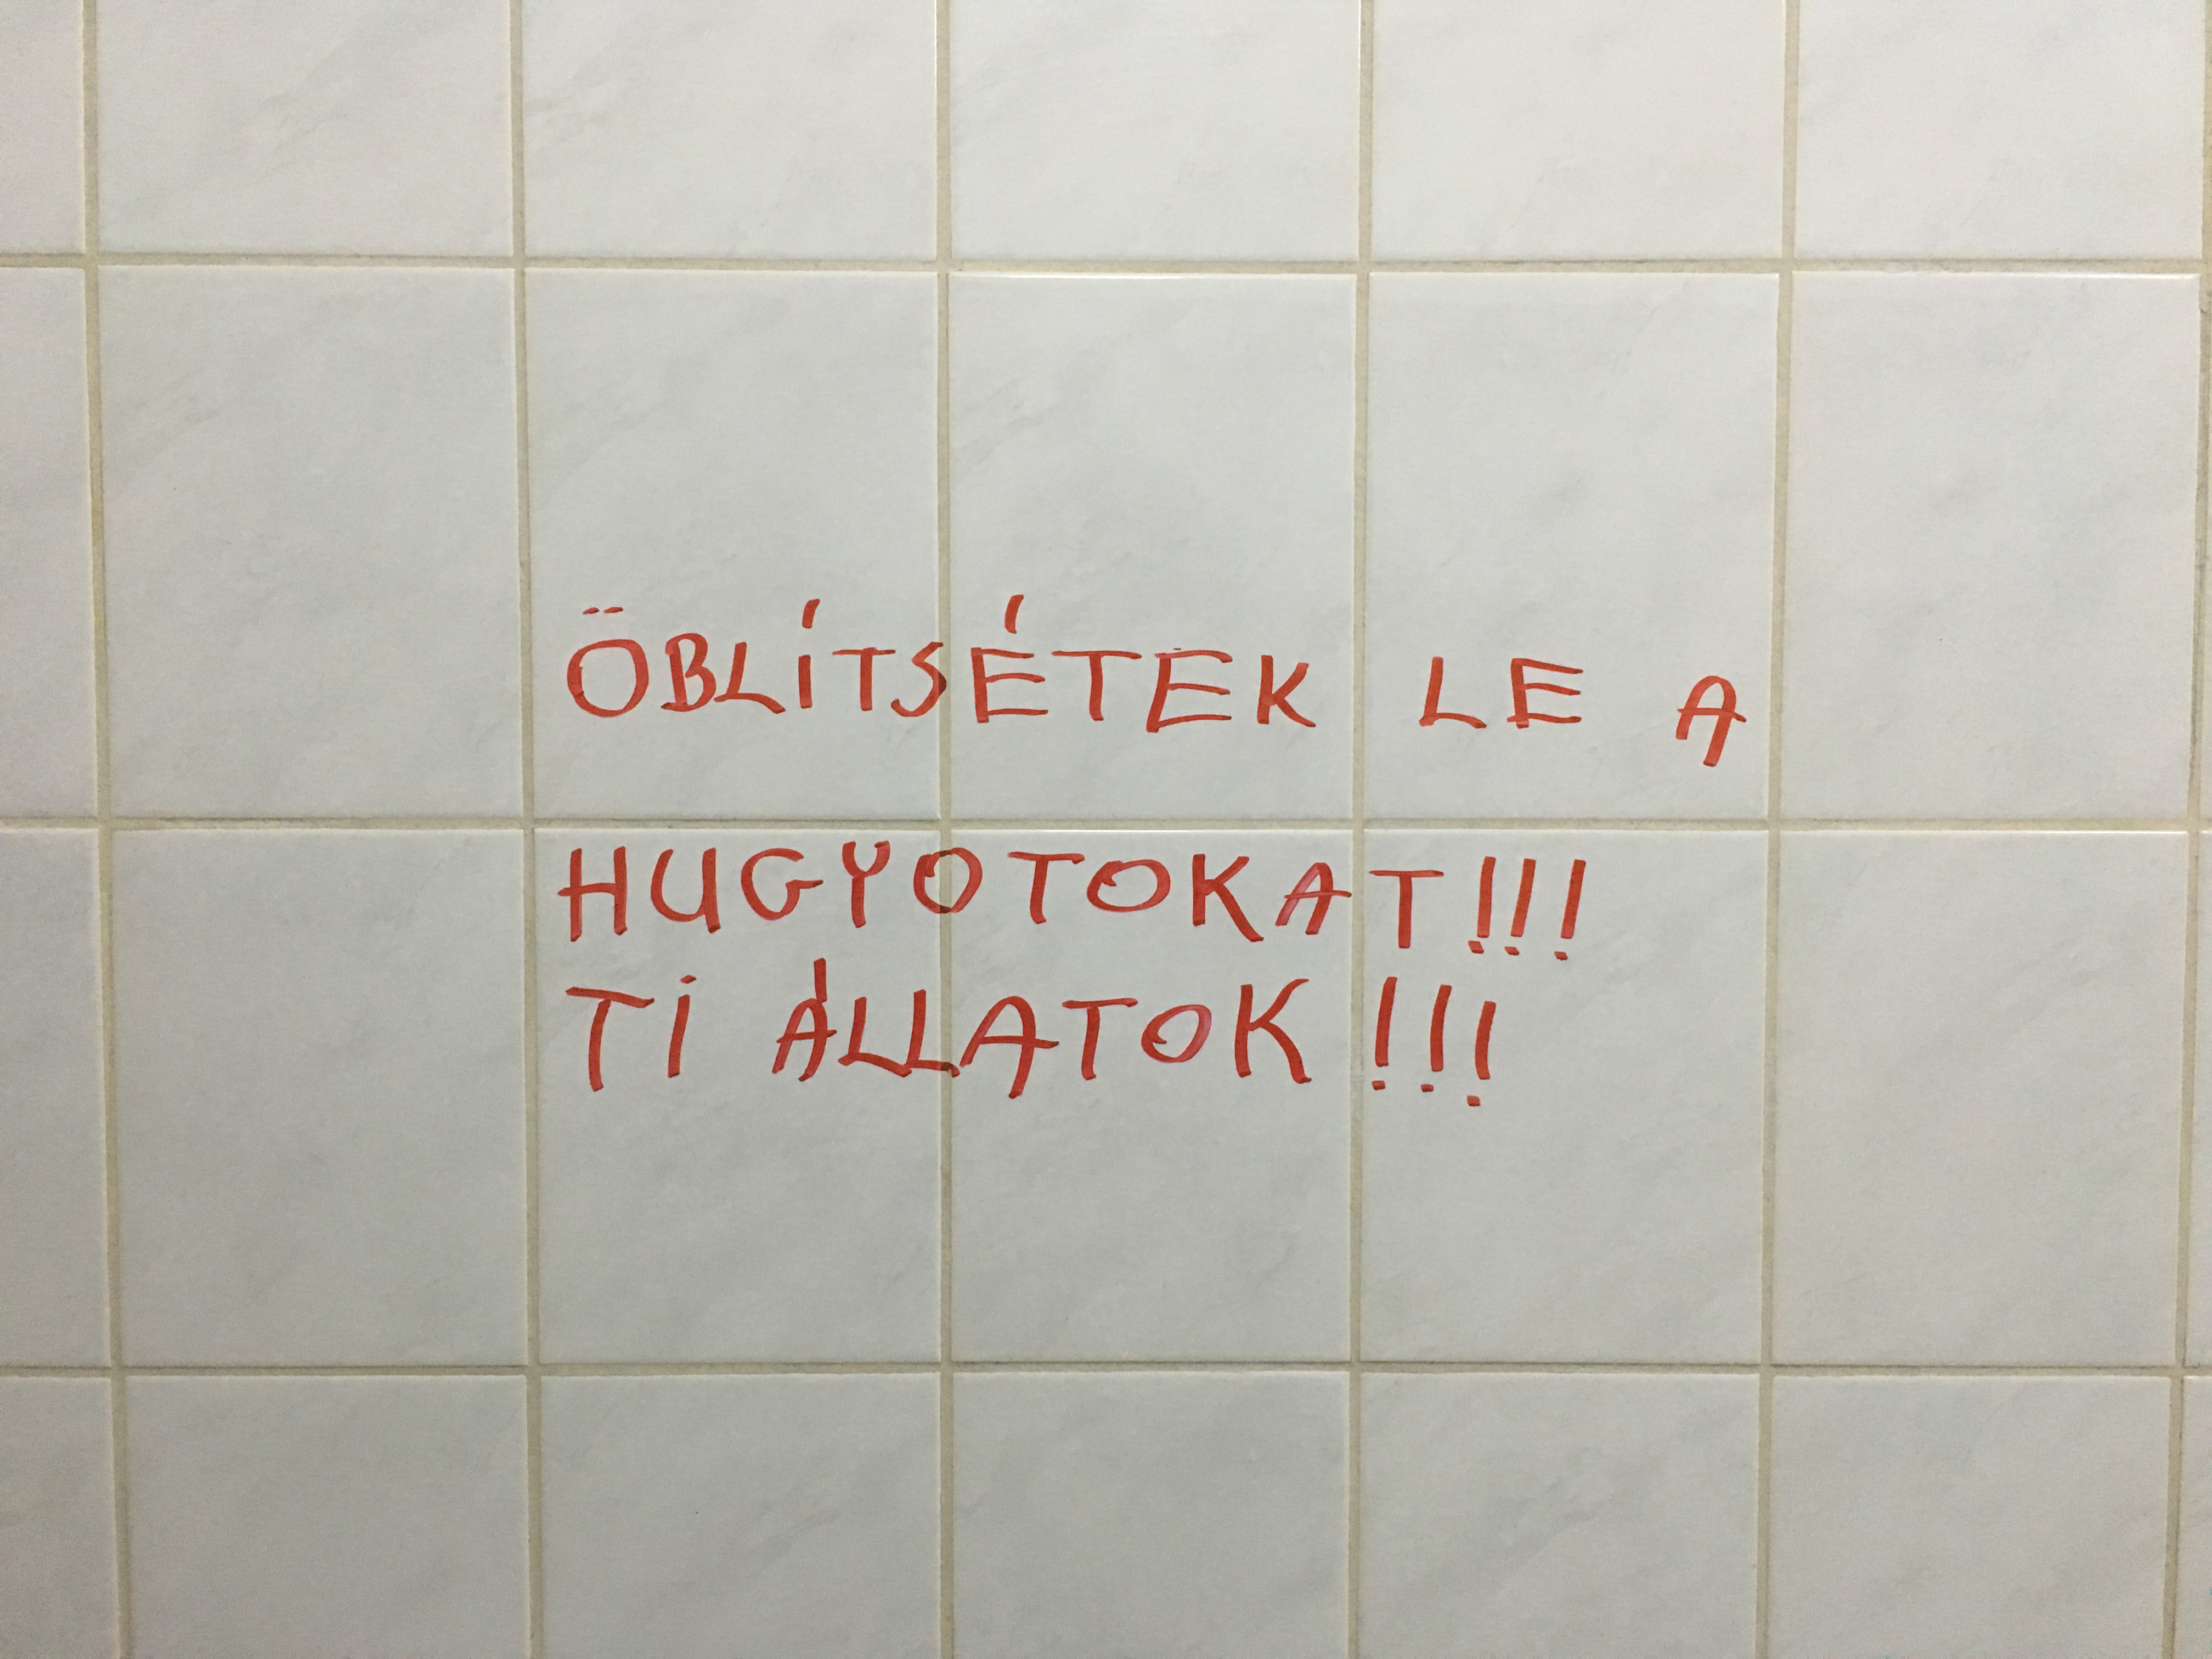 ÖBLÍTSÉTEK LE A
HUGYOTOKAT!!!
TI ÁLLATOK!!!